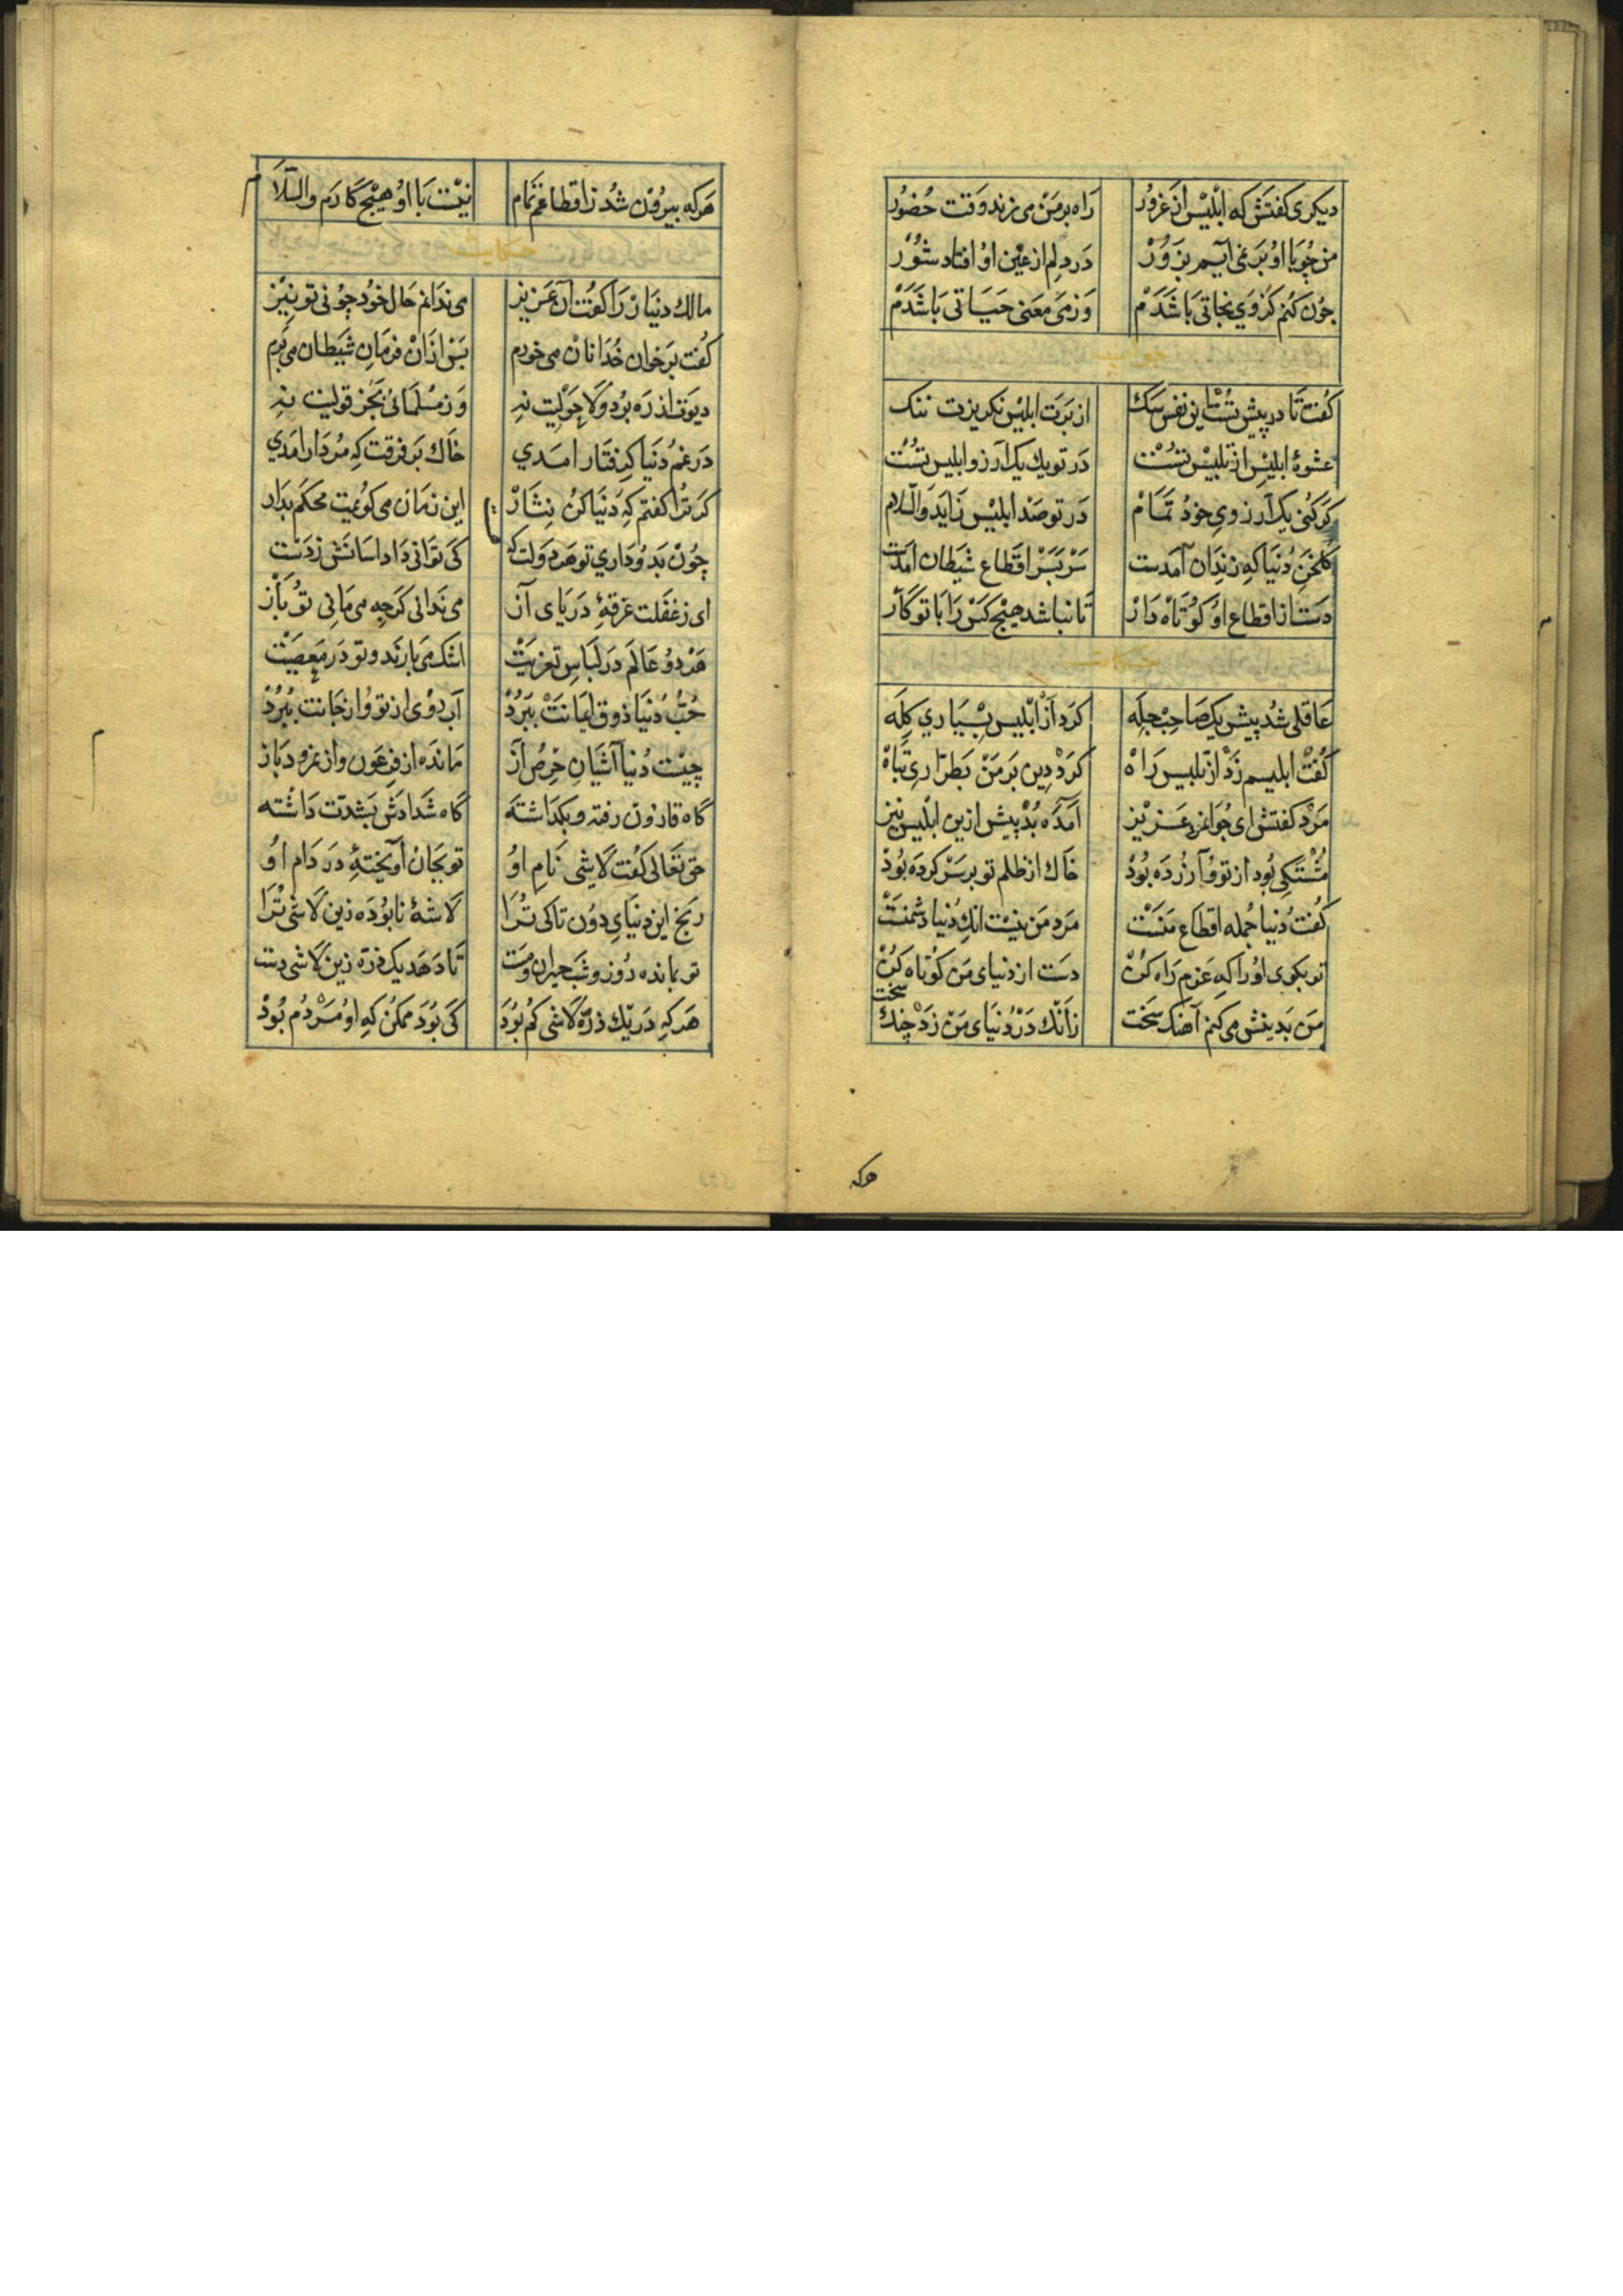 دیکری کفتش که ابلیس از غرور راه بر من می زند وقت حضور
من چو با او بر نمی آیم بزور در دلم از غبن او افتاد شور
چون کنم کز وی نجاتی باشدم وز می معنی حیاتی باشدم
جواب
کفت تا در پیش تست این نفس سک از برت ابلیس نکریزت بتک
عشوۀ ابلیس از تلبیس تست در تو یک یک آرزو ابلیس تست
کر کنی یک آرزوی خود تمام در تو صد ابلیس زاید والسلام
کلخن دنیا که زندان آمدست سر بسر اقطاع شیطان آمدست
دست از اقطاع او کوتاه دار تا نباشد هیچ کس را با تو کار
حکایت
عاقلی شد پیش یک صاحب چله کرد از ابلیس بسیاری کله
کفت ابلیسم زد از تلبیس راه کرد دین بر من بطراری تباه
مرد کفتش ای جوانمرد عزیز آمده بد پیش ازین ابلیس نیز
مشتکی بود از تو و آزرده بود خاک از ظلم تو بر سر کرده بود
کفت دنیا جمله اقطاع منست مرد من نیست انک دنیا دشمنست
تو بکوی او را که عزم راه کن دست از دنیای من کوتاه کن
من بدینش می کنم آهنک سخت زانک در دنیای من زد چنک سخت
هرکه
هرکه بیرون شد ز اقطاعم تمام نیست با او هیچ کارم والسلام
حکایت
مالک دینار را کفت آن عزیز می ندانم حال خود چونی تو نیز
کفت بر خوان خدا نان می خورم پس از آن فرمان شیطان می برم
دیوت از ره برد و لا حولیت نه وز مسلمانی بجز قولیت نه
در غم دنیا کرفتار آمدی خاک بر فرقت که مردار آمدی
کر ترا کفتم که دنیا کن نثار این زمان می کویمت محکم بدار
چون بدو داری تو هر دولت که کی توانی داد آسانش ز دست
ای ز غفلت غرقۀ دریای آز می ندانی کز چه می مانی تو باز
هر دو عالم در لباس تعزیت اشک می بارند و تو در معصیت
حب دنیا ذوق ایمانت ببرد آب روی از تو و از جانت ببرد
چیست دنیا آشیان حرص و آز مانده از فرعون و از نمرود باز
کاه قارون رفته و بکذاشته کاه شدادش بشدت داشته
حق تعالی کفت لاشی نام او تو بجان آویختۀ در دام او
رنج این دنیای دون تا کی ترا لاشۀ نابوده زین لاشی ترا
تو بمانده روز و شب حیران و مست تا دهد یک ذره زین لاشی دست
هر که در یک ذرۀ لاشی کم بود کی بود ممکن که او مردم بود